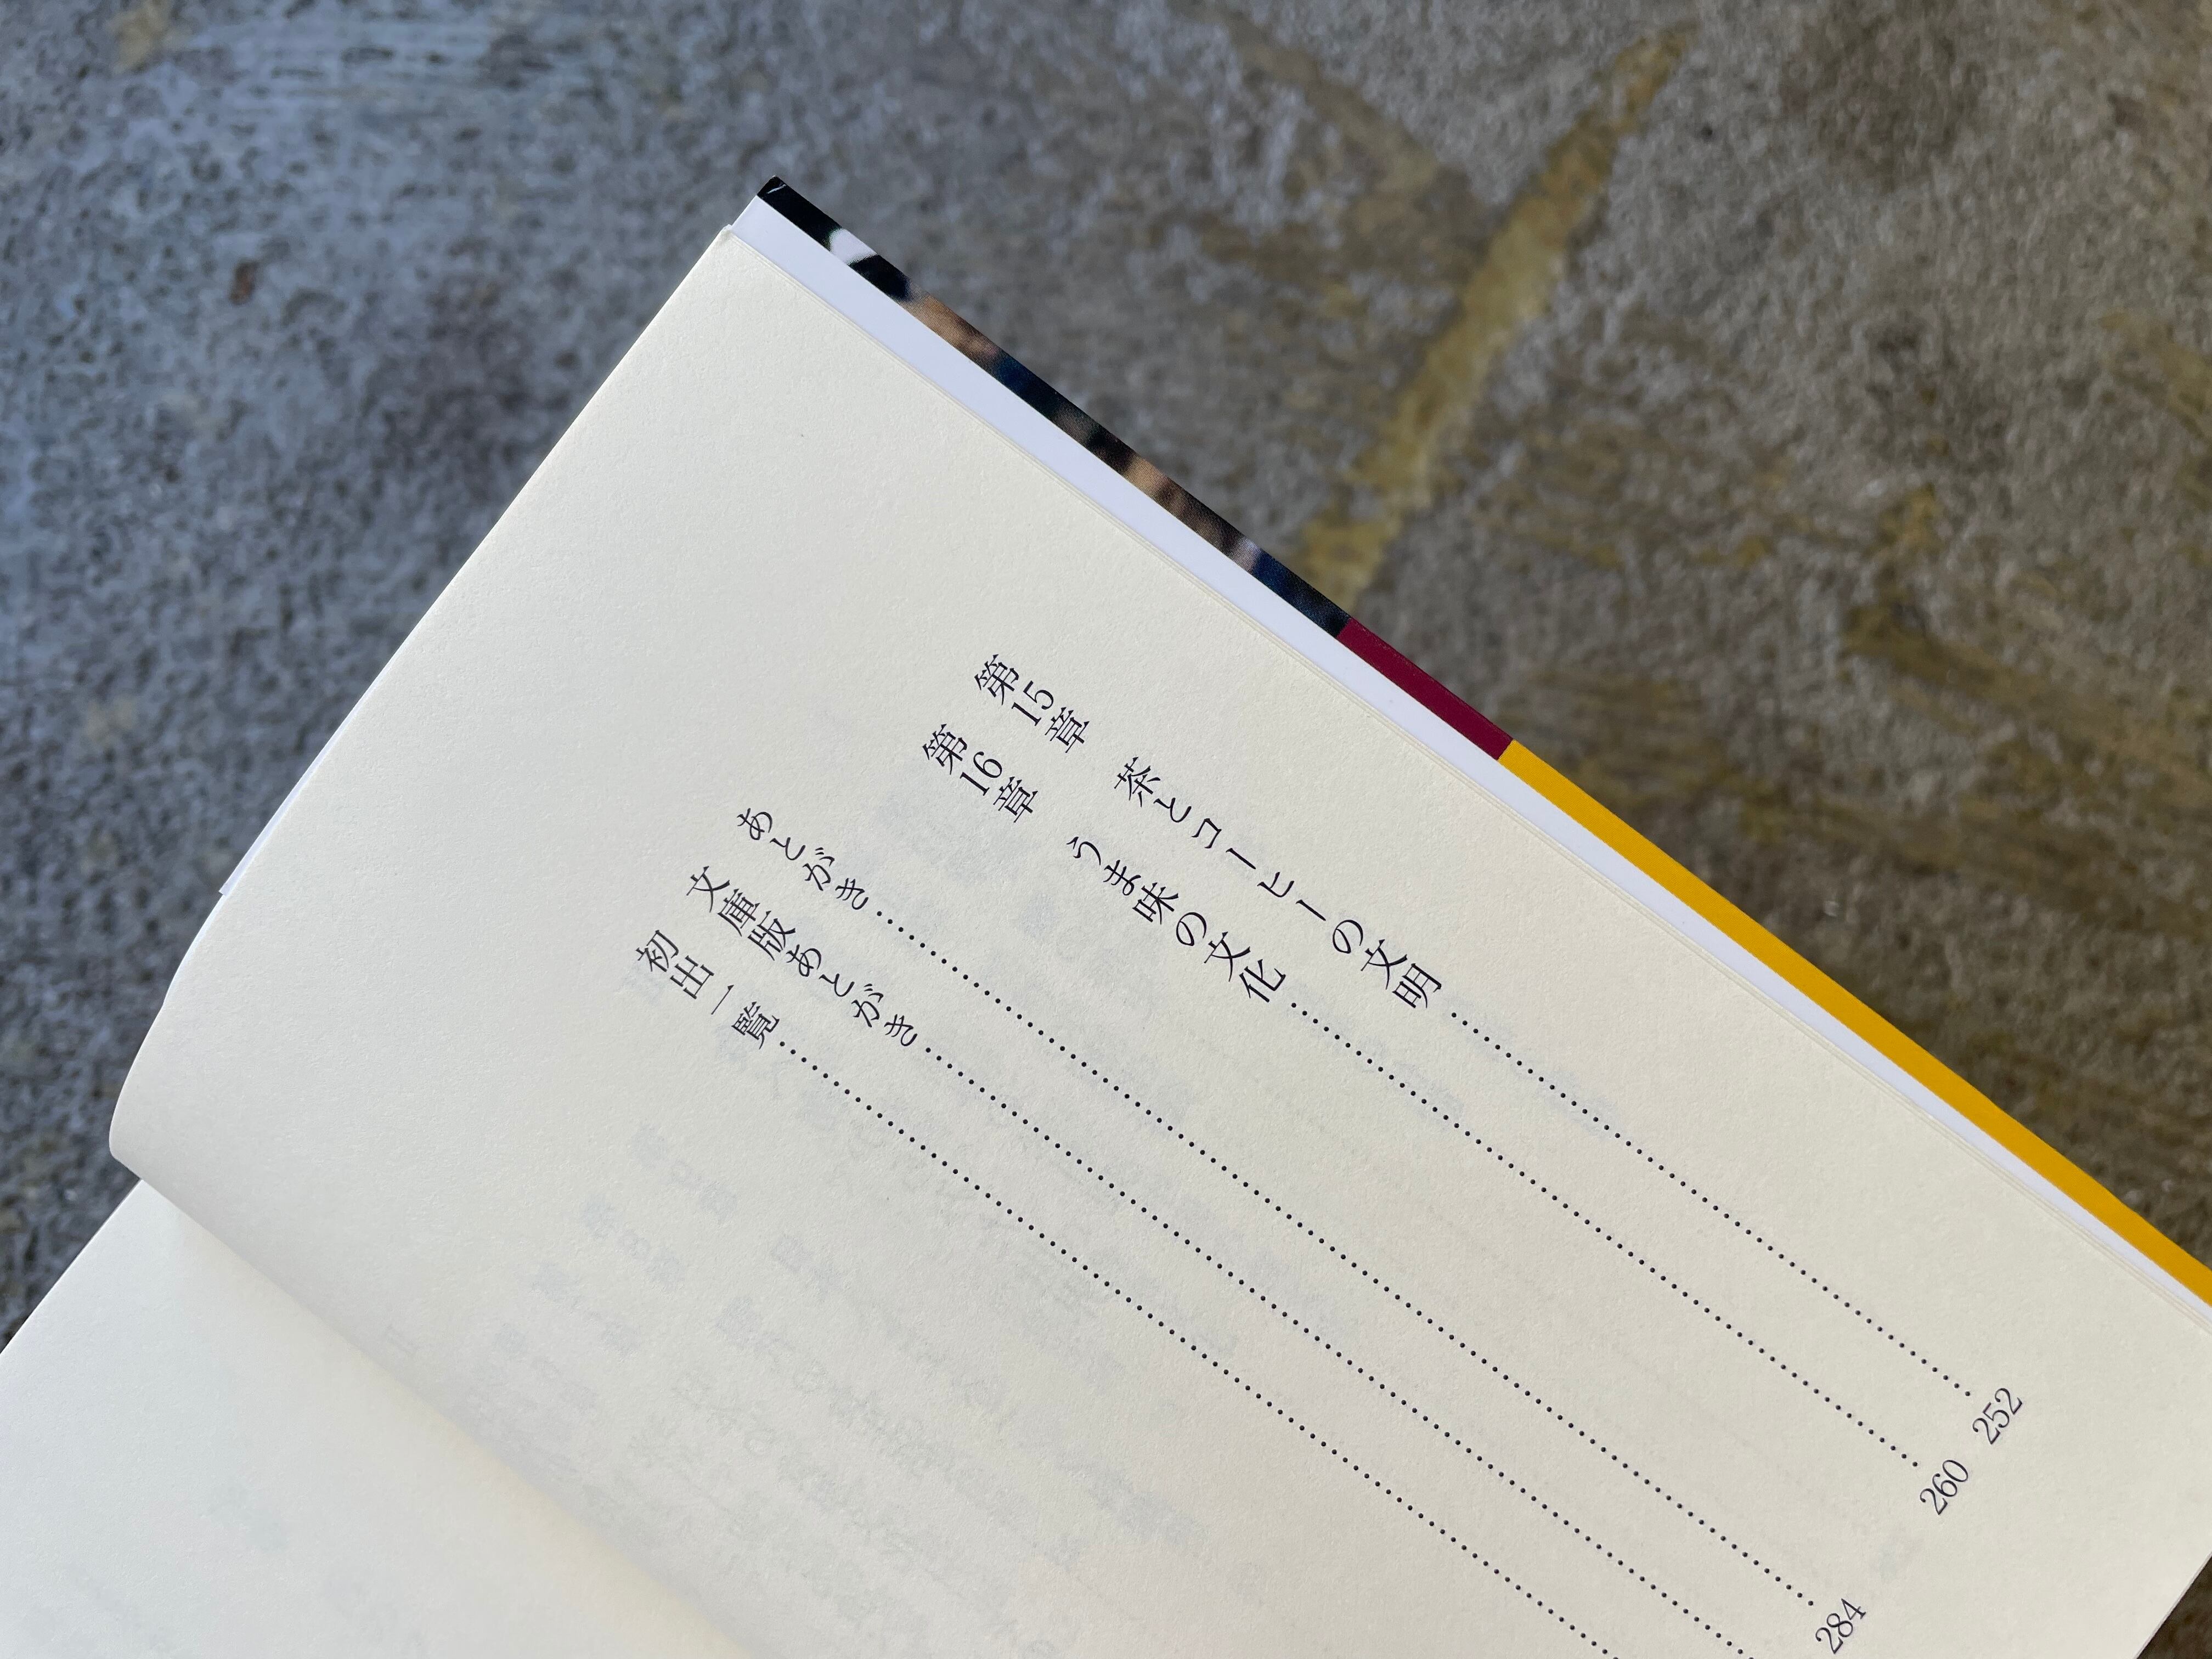 第15章 茶とコーヒーの文明……………………252
第16章 うま味の文化……………………260
あとがき……………………284
文庫版あとがき……………………
初出一覧……………………